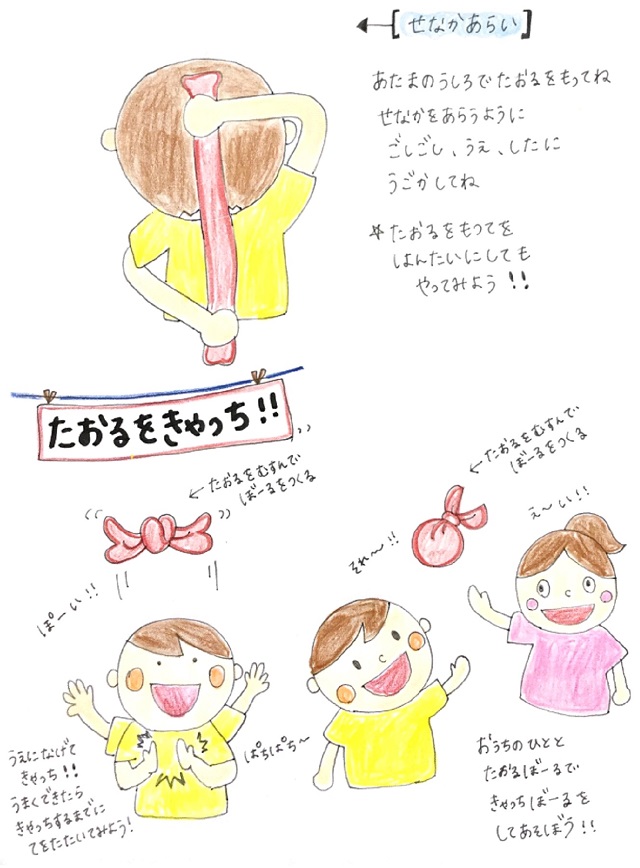 [せなかあらい]
あたまのうしろでたおるをもってね
せなかをあらうように
ごしごし、うえ、したに
うごかしてね
☆たおるをもつてを
はんたいにしても
やってみよう!!
たおるをきゃっち!!
←たおるをむすんで
ぼーるをつくる
←たおるをむすんで
ぼーるをつくる
ぽーい!!
それ〜!!
え〜い!!
うえになげて
きゃっち!!
うまくできたら
きゃっちするまでに
てをたたいてみよう!
ぱちぱち〜
おうちのひとと
たおるぼーるで
きゃっちぼーるを
してあそぼう!!